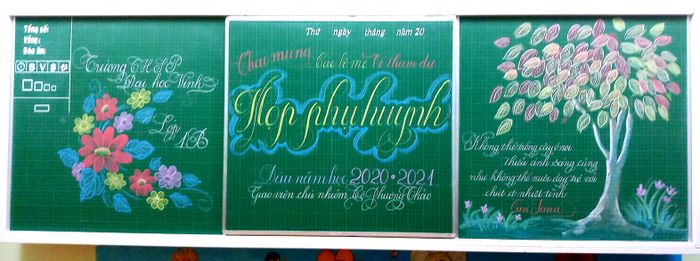 Tổng số:
Vắng:
Báo ăn:
Trường THSP
Đại học Vinh
Lớp
1B
Thứ ngày tháng năm 20
Chào mừng Các bố mẹ Về tham dự
Họp phụ huynh
Đầu năm học 2020-2021
Giáo viên chủ nhiệm: Cô Phương Thảo
Không thể trồng cây ở nơi
thiếu ánh sáng cũng
như không thể nuôi dạy trẻ với
chút ít nhiệt tình